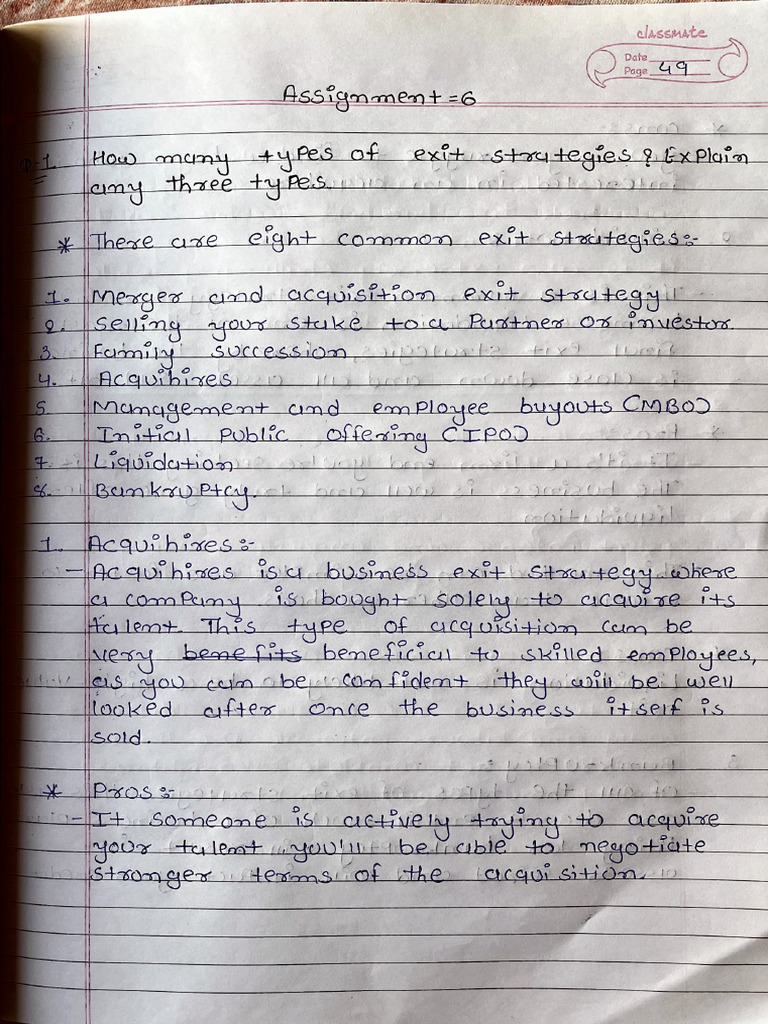 classmate
Date
Page 49
Assignment = 6
Q-1. How many types of exit strategies? Explain
any three types.
* There are eight common exit strategies:-
1. Merger and acquisition exit strategy
2. Selling your stake to a Partner or investor.
3. Family succession
4. Acquihires
5. Management and employee buyouts (MBO)
6. Initial Public offering (IPO)
7. Liquidation
8. Bankruptcy.
1. Acquihires:-
- Acquihires is a business exit strategy where
a company is bought solely to acquire its
talent. This type of acquisition can be
very benefits beneficial to skilled employees,
as you can be confident they will be well
looked after once the business itself is
sold.
* Pros:-
- It someone is actively trying to acquire
your talent you'll be able to negotiate
stronger terms of the acquisition.